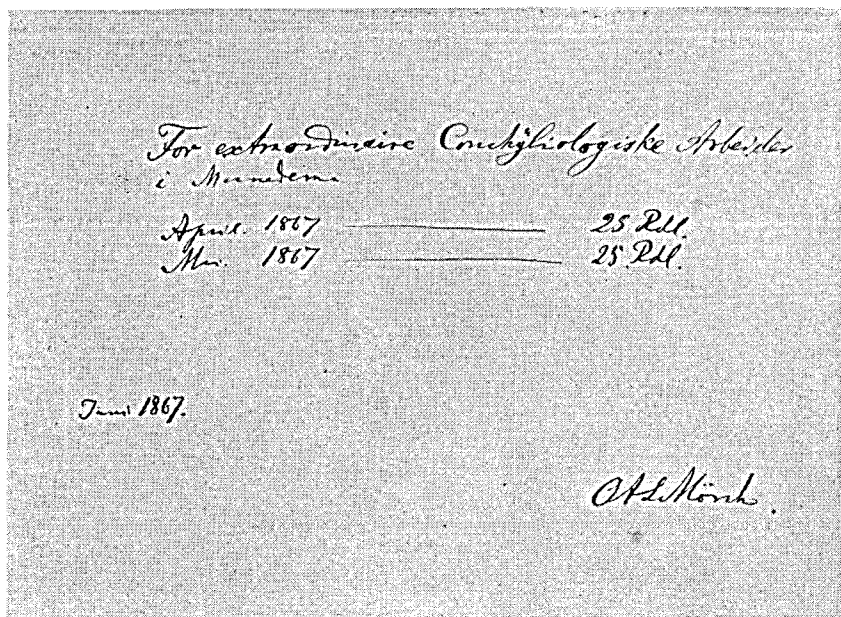 For extraordinaire Conchÿliologiske Arbeider
i Maanederne
April. 1867 25 Rdl.
Mai. 1867 25 Rdl.
Juni 1867.
OALMörch.